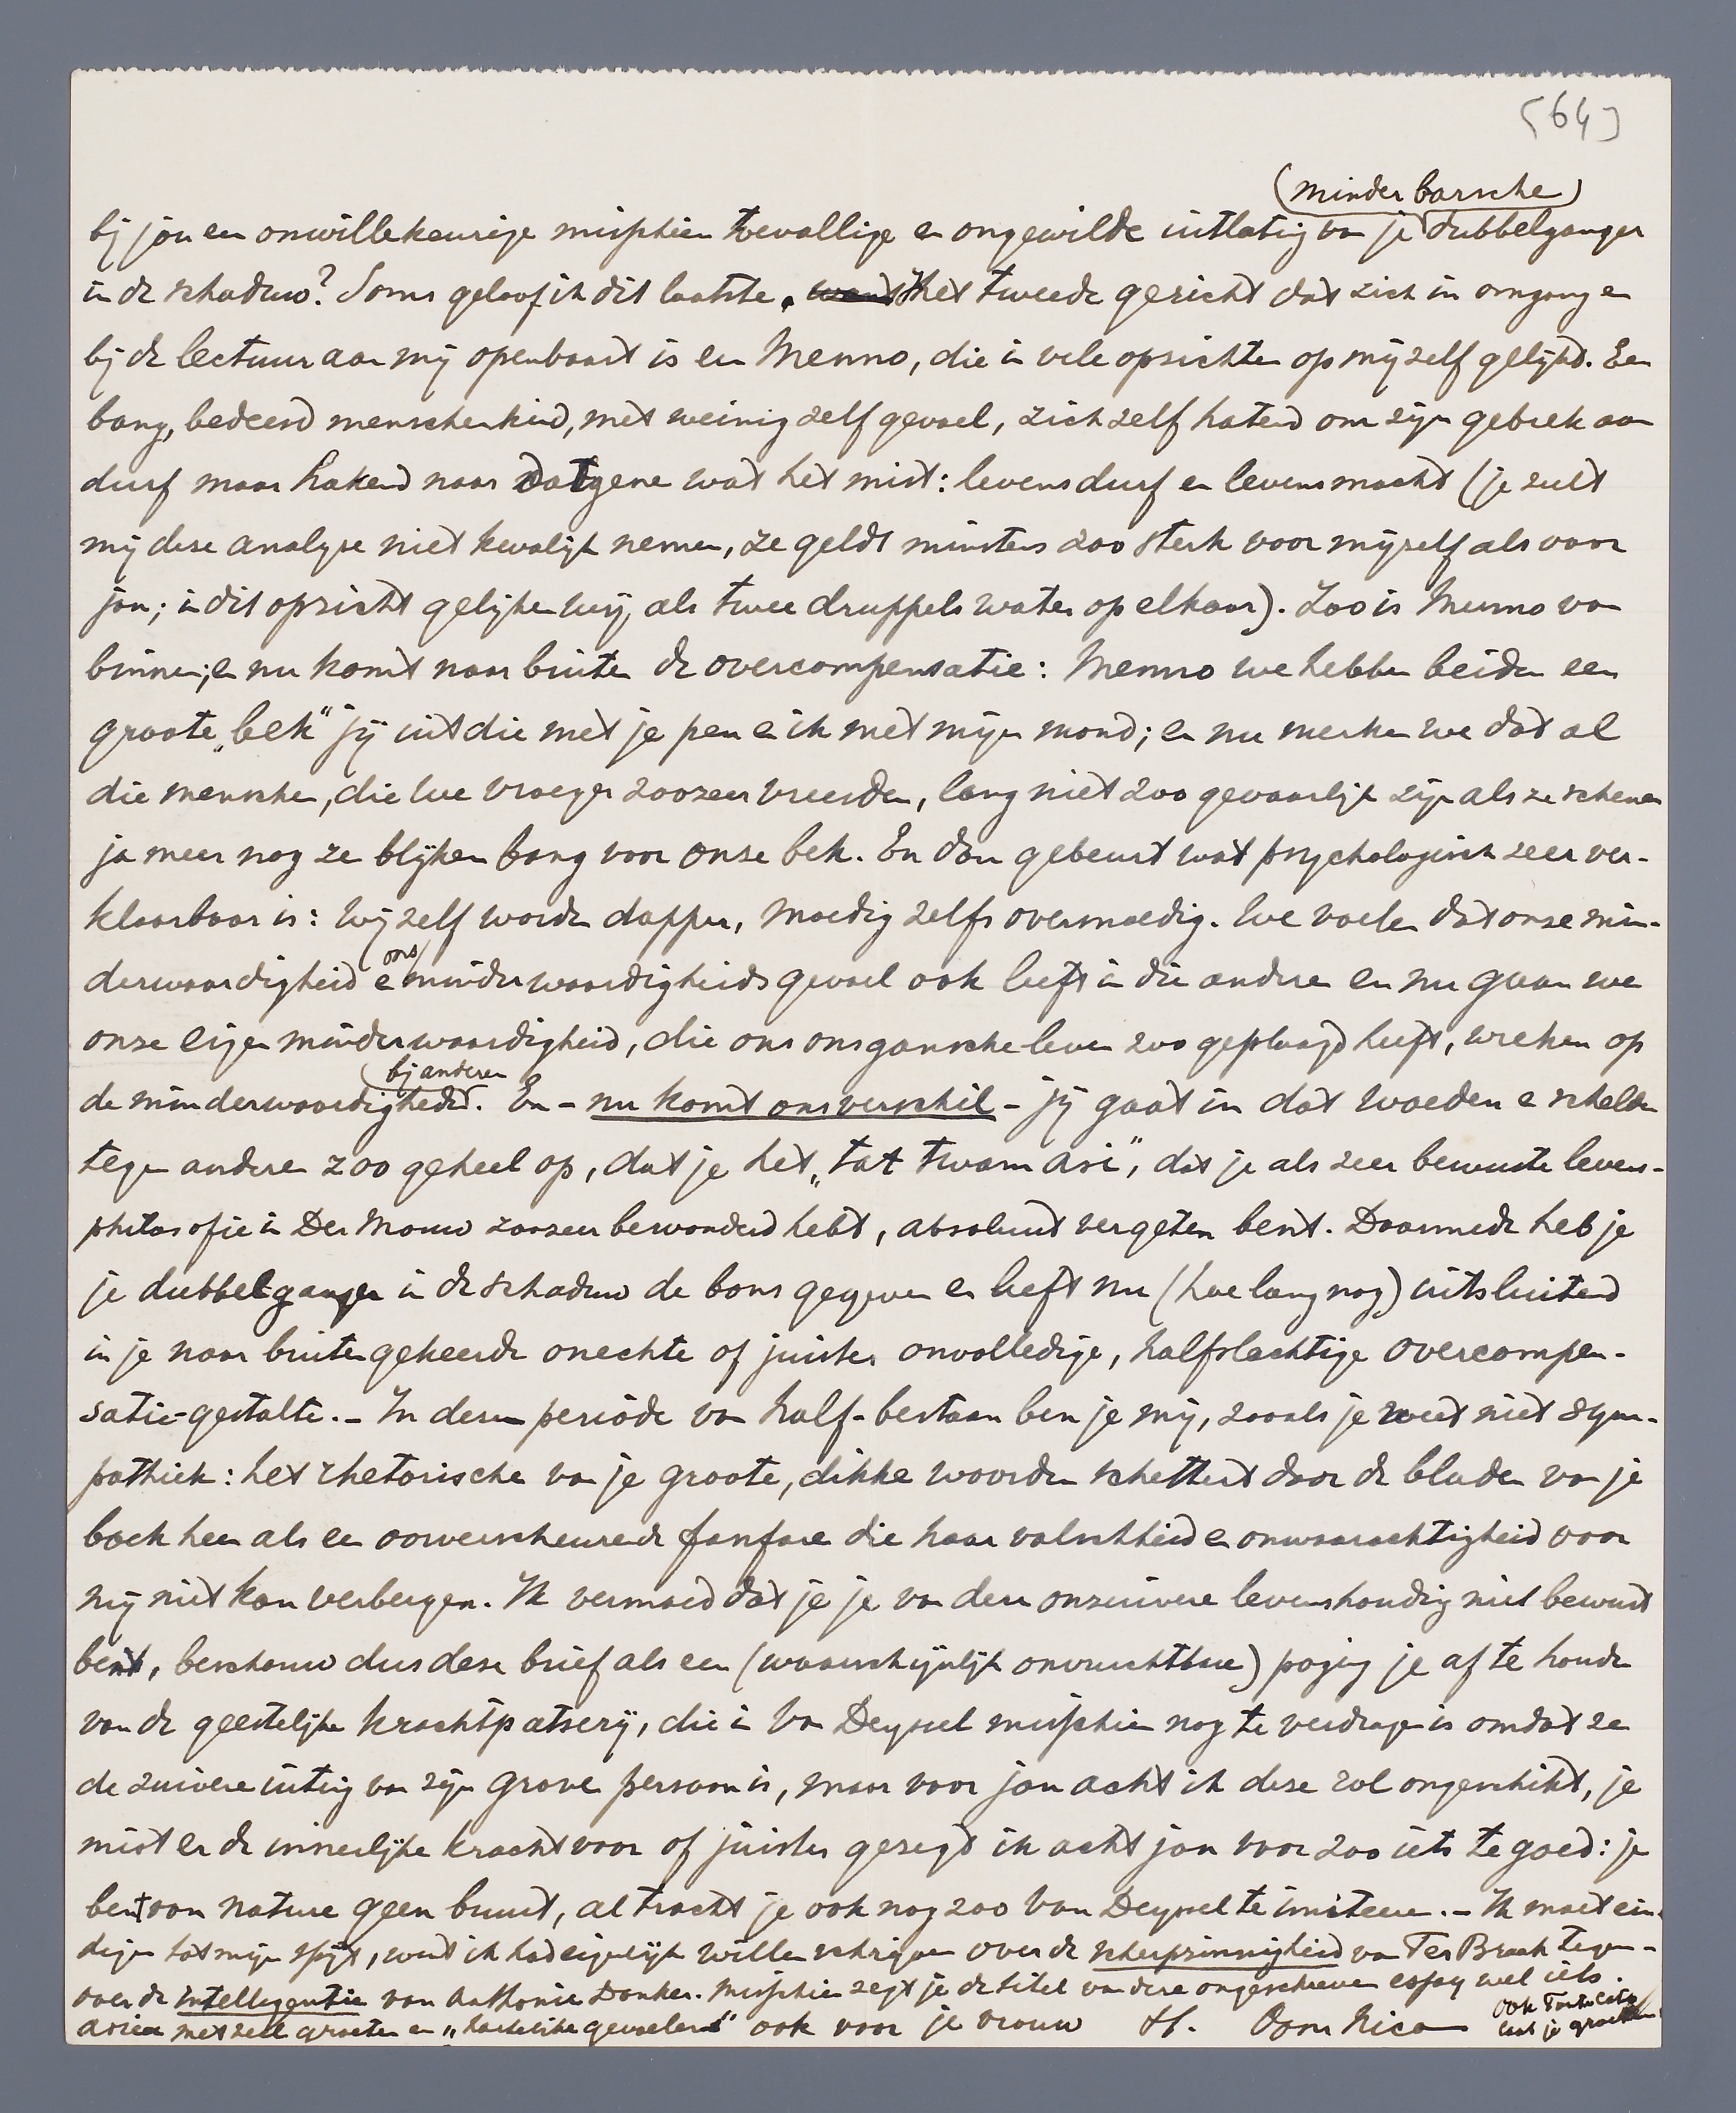 [64]
(minder barsche)
bij jou een onwillekeurige misschien toevallige en ongewilde uitlating van je dubbelganger
in de schaduw? Soms geloof ik dit laatste, want het tweede gezicht dat zich in omgang en
bij de lectuur aan mij openbaart is een Menno, die in vele opzichten op mijzelf gelijkt. Een
bang, bedeesd menschenkind, met weinig zelfgevoel, zichzelf hatend om zijn gebrek aan
durf maar hakend naar datgene wat het mist: levensdurf en levensmacht (je zult
mij deze analyse niet kwalijk nemen, ze geldt minstens zoo sterk voor mijzelf als voor
jou; in dit opzicht gelijken wij, als twee druppels water op elkaar). Zoo is Menno van
binnen; en nu komt naar buiten de overcompensatie: Menno we hebben beiden een
groote „bek" jij uit die met je pen en ik met mijn mond; en nu merken we dat al
die menschen, die we vroeger zoozeer vreesden, lang niet zoo gevaarlijk zijn als ze schenen
ja meer nog ze blijken bang voor onze bek. En dan gebeurt wat psychologisch zeer ver-
klaarbaar is: wij zelf worden dapper, moedig zelfs overmoedig. We voelen dat onze min-
derwaardigheid en ons minderwaardigheidsgevoel ook leeft in die anderen en nu gaan we
onze eigen minderwaardigheid, die ons ons gansche leven zoo geplaagd heeft, wreken op
de minderwaardigheid bij anderen. En – nu komt ons verschil – jij gaat in dat woeden en schelden
tegen anderen zoo geheel op, dat je het „tat twam asi", dat je als zeer bewuste levens-
philosofie in Der Mouw zoozeer bewonderd hebt, absoluut vergeten bent. Daarmede heb je
je dubbelganger in de schaduw de bons gegeven en leeft nu (hoe lang nog) uitsluitend
in je naar buiten gekeerde onechte of juister onvolledige, halfslachtige overcompen-
satie-gestalte. – In deze periode van half-bestaan ben je mij, zooals je weet niet sym-
pathiek: het rhetorische van je groote, dikke woorden schettert door de bladen van je
boek heen als een oorverscheurende fanfare die haar valschheid en onwaarachtigheid voor
mij niet kan verbergen. Ik vermoed dat je je van deze onzuivere levenshouding niet bewust
bent, beschouw dus deze brief als een (waarschijnlijk onvruchtbare) poging je af te houden
van de geestelijke krachtpatserij, die in Van Deyssel misschien nog te verdragen is omdat ze
de zuivere uiting van zijn grove persoon is, maar voor jou acht ik deze rol ongeschikt, je
mist er de innerlijke kracht voor of juister gezegd ik acht jou voor zoo iets te goed: je
bent van nature geen bruut, al tracht je ook nog zoo Van Deyssel te imiteeren. – Ik moet ein-
digen tot mijn spijt, want ik had eigenlijk willen schrijven over de scherpzinnigheid van Ter Braak tegen-
over de intelligentie van Anthonie Donker. Misschien zegt je de titel van deze ongeschreven essay wel iets.
Adieu met veel groeten en „hartelijke gevoelens" ook voor je vrouw tt. Oom Nico